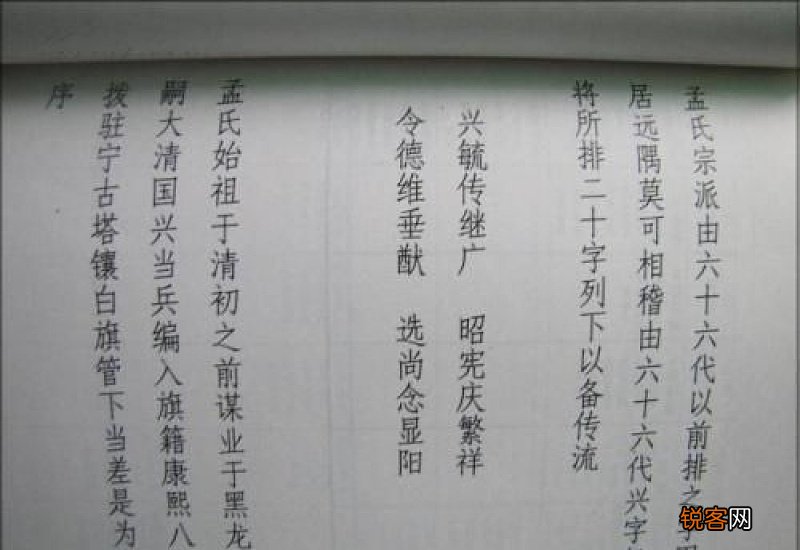 孟氏宗派由六十六代以前排之字
居远隅莫可相稽由六十六代兴字
将所排二十字列下以备传流
兴毓传继广 昭宪庆繁祥
令德维垂猷 选尚念显阳
孟氏始祖于清初之前谋业于黑龙
嗣大清国兴当兵编入旗籍康熙八
拨驻宁古塔镶白旗管下当差是为
序
锐客网